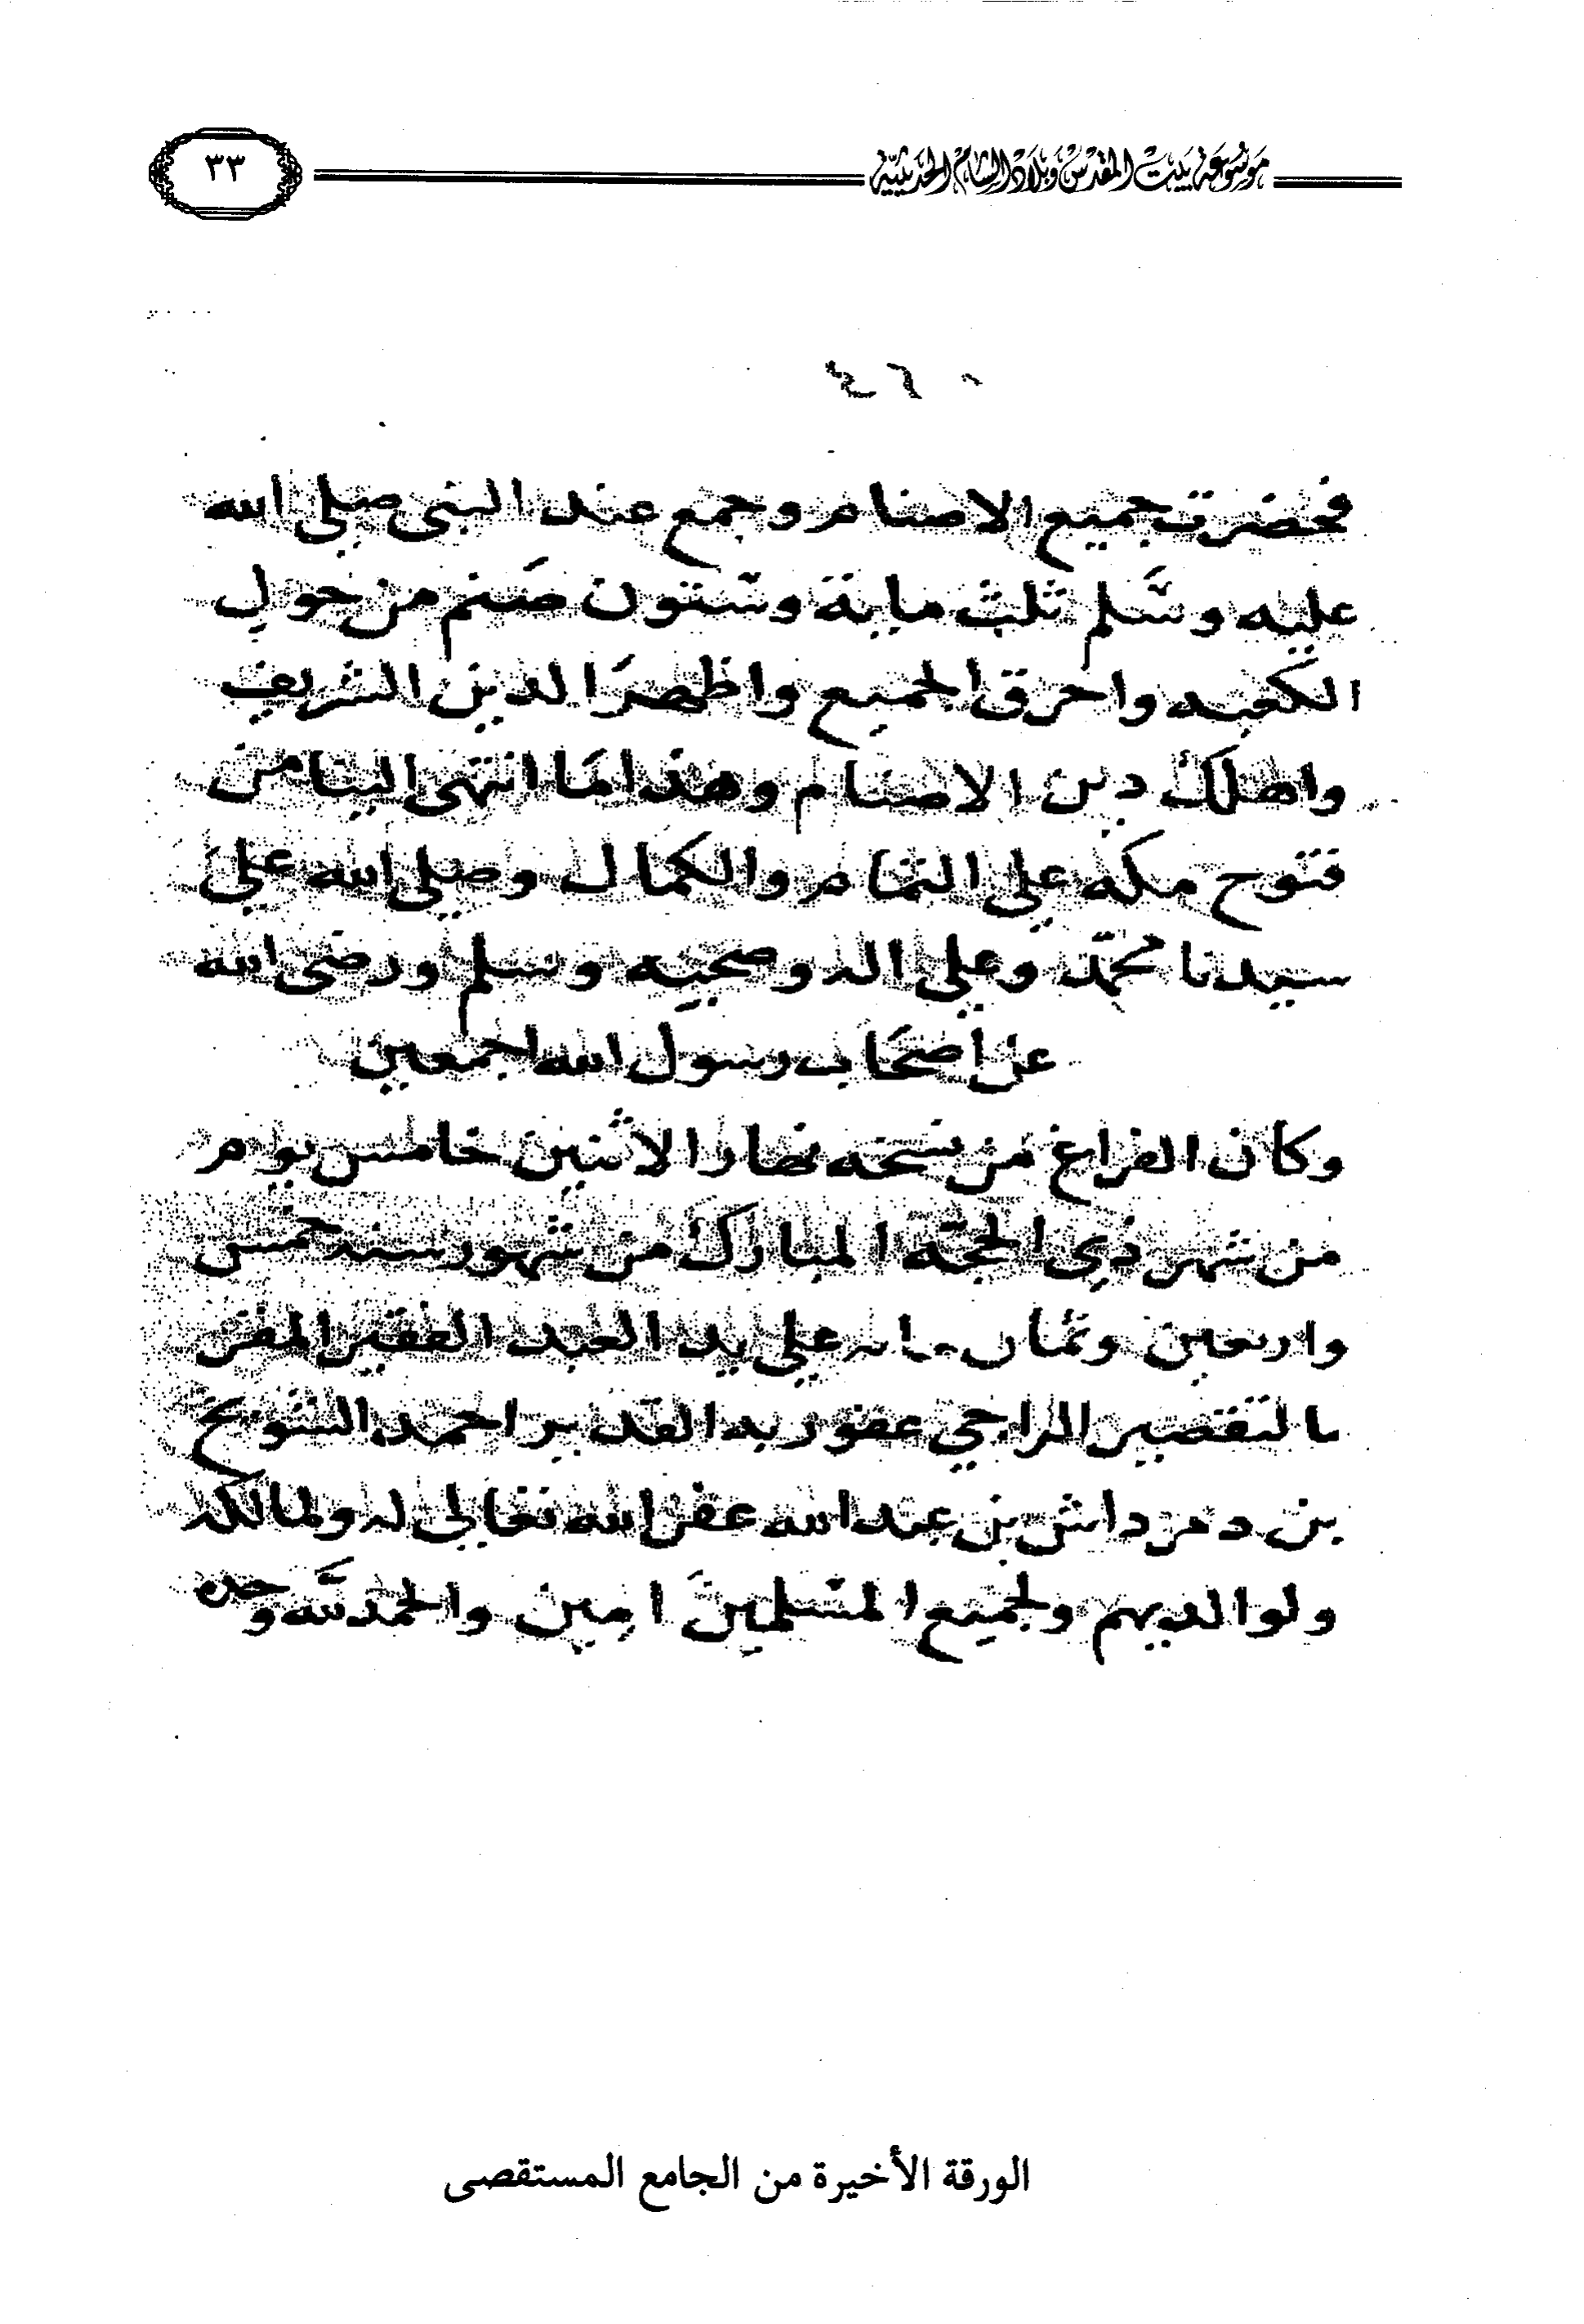 موسوعة بيت المقدس وبلاد الشام الحديثية
٣٣
٤٦٠
فحضرت جميع الاصنام وجمع عند النبى صلى الله
عليه وسَّلم ثلث ماية وستون صَنم من حول
الكعبه واحرق الجميع واظهرَ الدين الشريف
واهلكَ دين الاصنام وهذا مَا انتهى الينا من
فتوح مكه على التمام والكمال وصلى الله على
سيدنا محمّد وعلى اله وصحبه وسلم ورضى الله
عن اصحَاب رسول الله اجمعين
وكان الفراغ من نسخه نهار الاثنين خامس يوم
من شهر ذي الحجّة المبارك من شهور سنه خمس
واربعين وثمان مايه على يد العبد الفقير المقر
بالتقصير الراجي عفو ربه القدير احمد الشويخ
بن دمرداش بن عبد الله غفر الله تعالى له ولمالكه
ولوالديهم ولجميع المسلمينَ امين والحمد لله وحده
الورقة الأخيرة من الجامع المستقصى